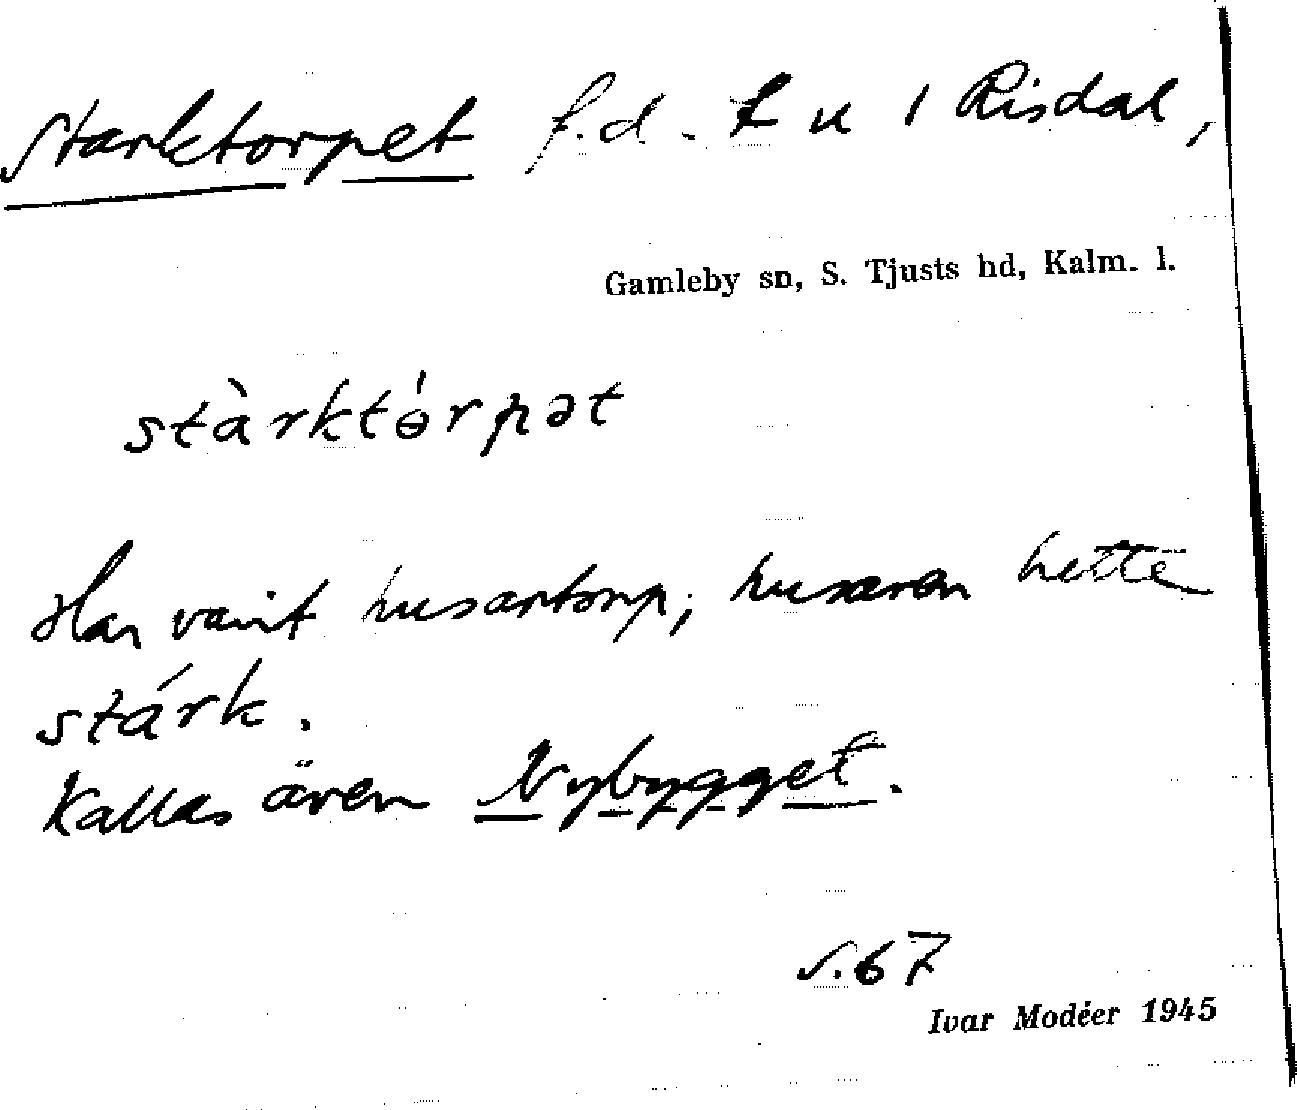 Starktorpet f.d. t u 1 Risdal,
Gamleby sn, S. Tjusts hd, Kalm. l.
stàrktɵ́rpət
Har varit husartorp; husaren hette
stárk.
Kallas även Nybygget.
s. 67
Ivar Modéer 1945